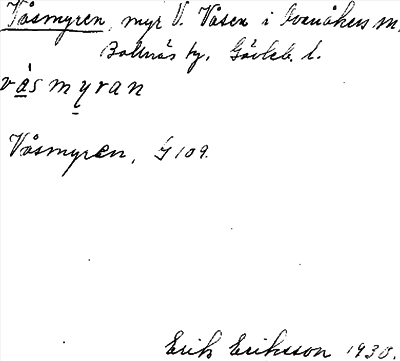 Våsmyren, myr V. Våsen i Svenåkers m.
Bollnäs tg. Gävleb. l.
våsmyran
Våsmyren, G 109.
Erik Eriksson 1930.